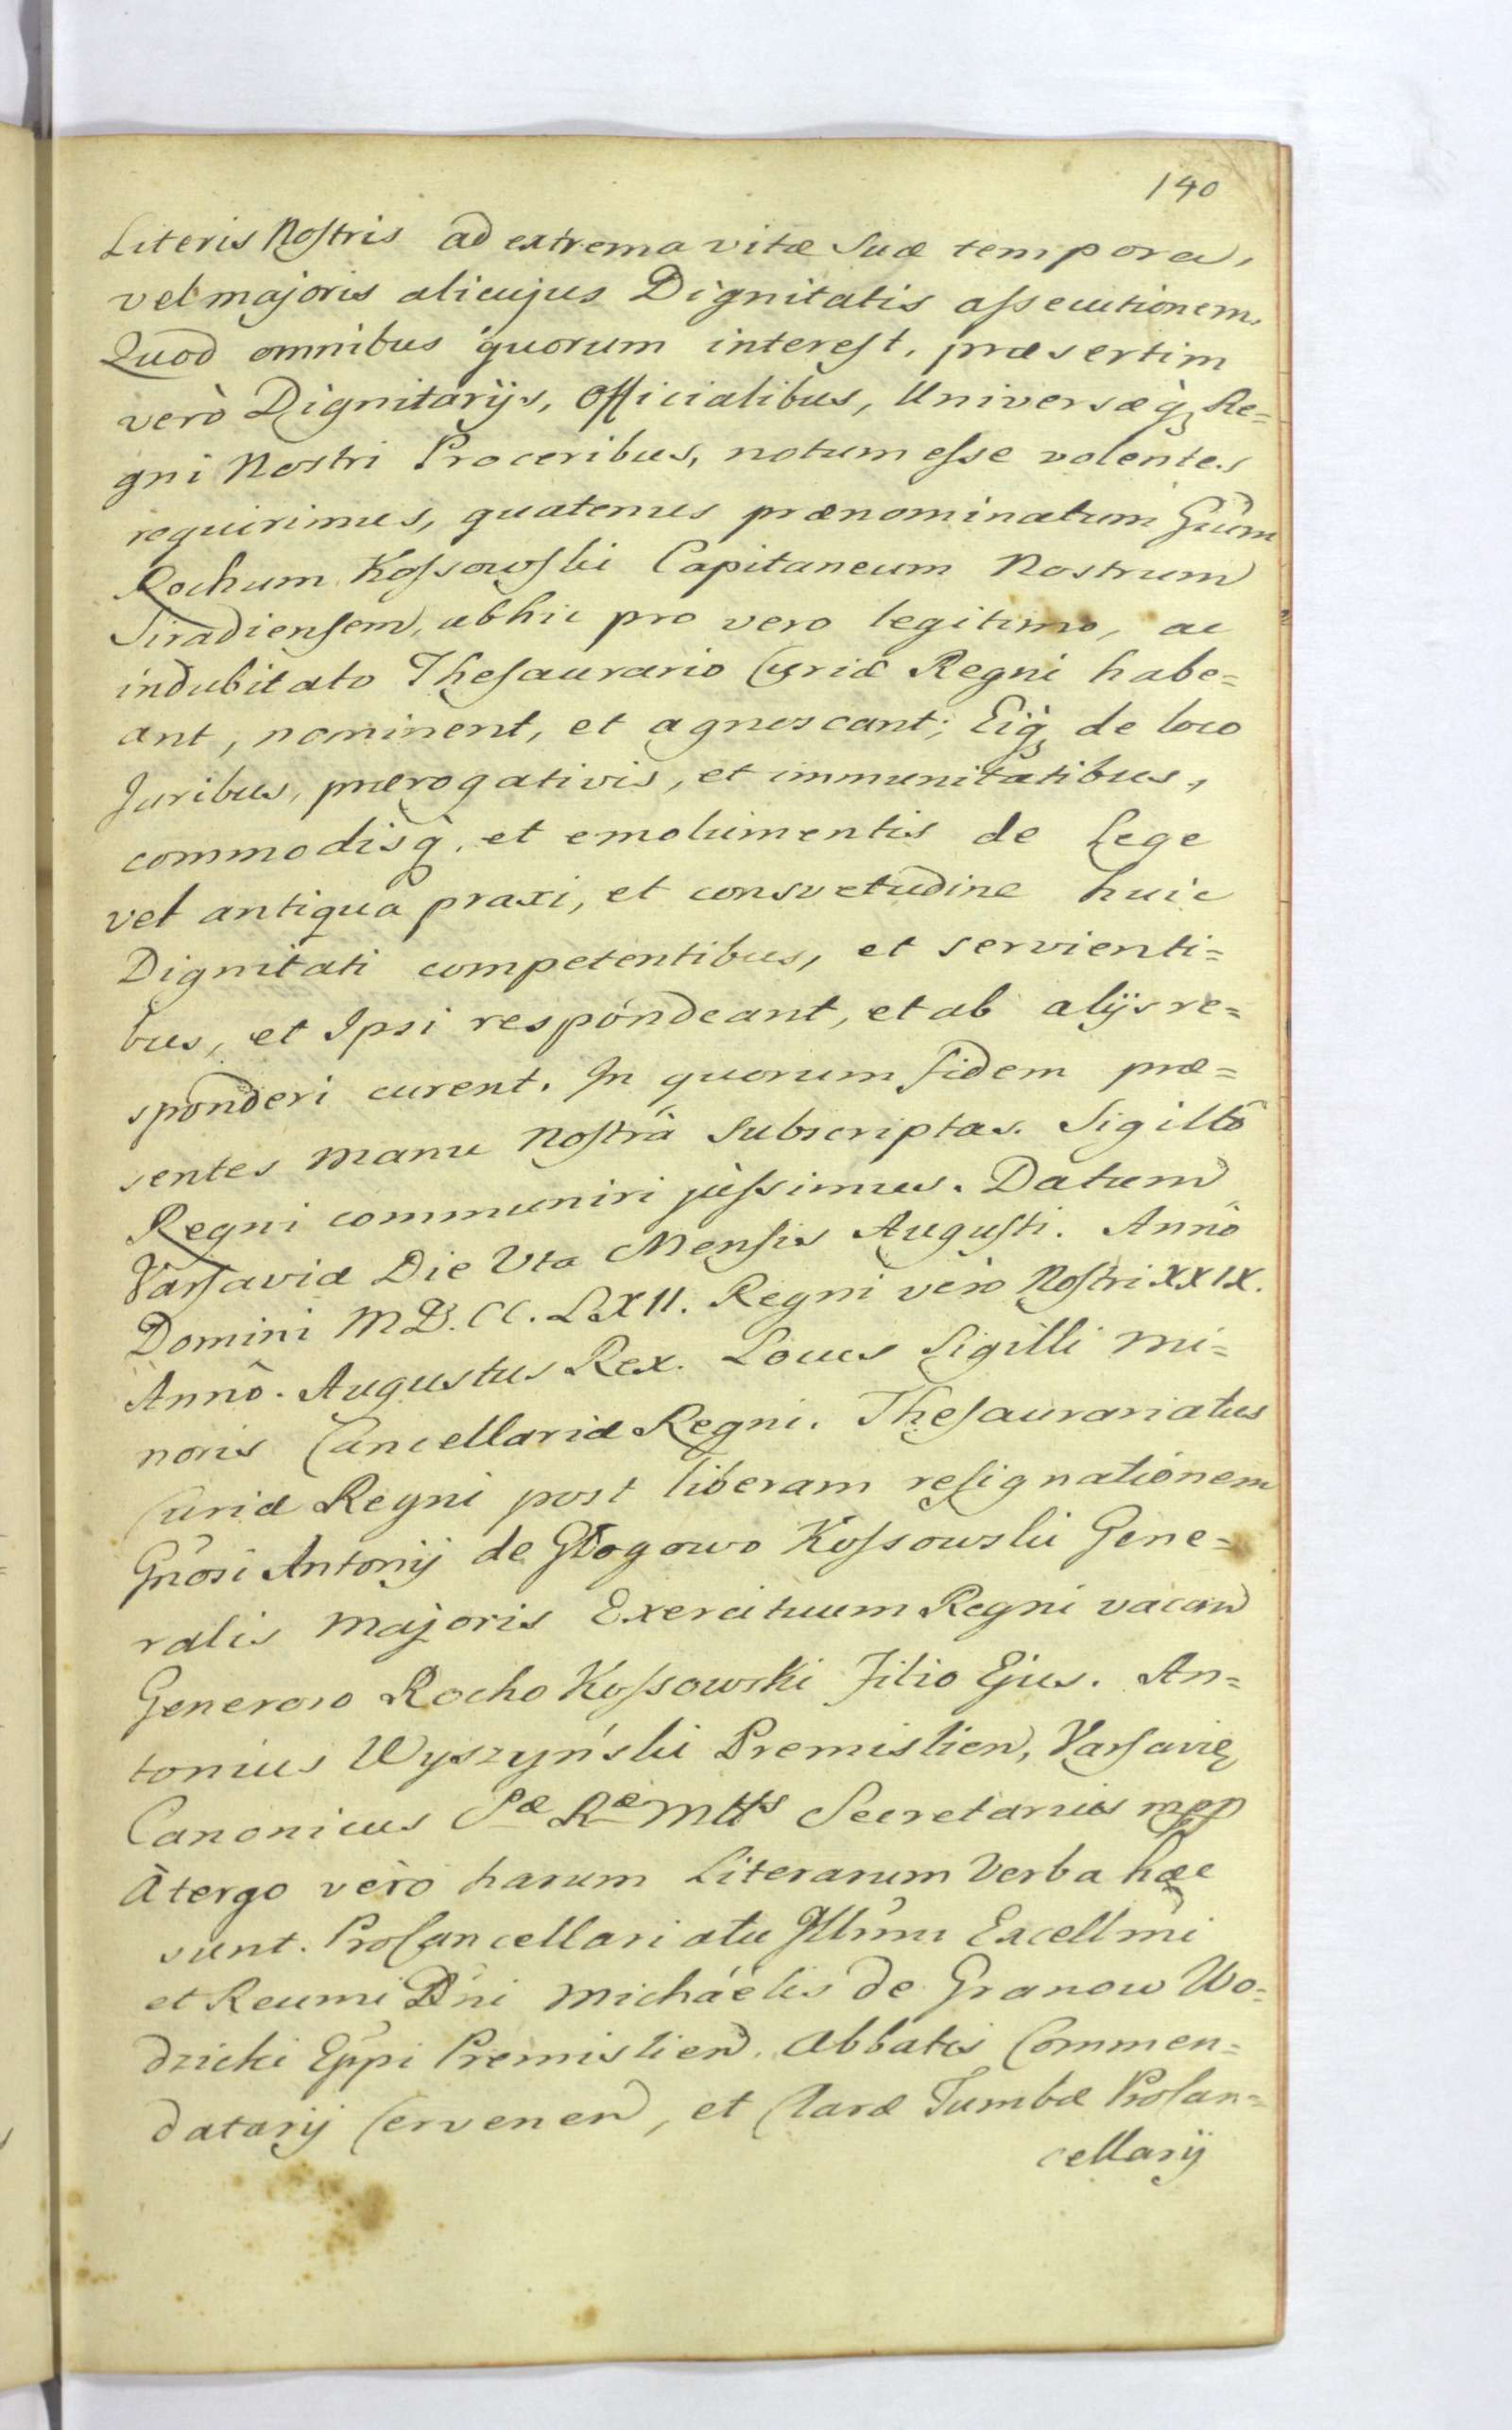 140
Literis Nostris ad extrema vitæ Suæ tempora,
vel majoris alicujus Dignitatis assecutionem.
Quod omnibus quorum interest, præsertim
verò Dignitarijs, Officialibus, Universæq̀, Re=
gni Nostri Proceribus, notum esse volentes
requirimus, quatenus prænominatum Gñum
Rochum Kossowski Capitaneum Nostrum
Siradiensem, abhic pro vero legitimo, ac
indubitato Thesaurario Curiæ Regni habe=
ant, nominent, et agnoscant; Eiq̀, de loco
Juribus, prærogativis, et immunitatibus,
commodisq̀, et emolumentis de Lege
vel antiquâ praxi, et consvetudine huic
Dignitati competentibus, et servienti=
bus, et Ipsi respondeant, et ab alijs re=
sponderi curent. In quorum fidem præ=
sentes manu Nostrâ Subscriptas. Sigillô
Regni communiri jussimus. Datum
Varsaviæ Die Vta Mensis Augusti. Annô
Domini MD.CC.LXII. Regni vèro Nostri XXIX.
Annô. Augustus Rex. Locus Sigilli mi=
noris Cancellariæ Regni. Thesaurariatus
Curiæ Regni post liberam resignationem
Gñosi Antonij de Głogowo Kossowski Gene=
ralis Majoris Exercituum Regni vacan
Generoso Rocho Kossowski Filio Ejus. An=
tonius Wyszyński Premislien, Varsavię
Canonicus Sæ Ræ Mttis Secretarius mpp
À tergo vèro harum Literarum Verba hæc
sunt. ProCancellariatu Illmi Excellmi
et Reumi Dñi Michaélis de Granow Wo=
dzicki Eppi Premislien. Abbatis Commen=
datarij Cervenen, et Claræ Tumbæ ProCan=
cellarij